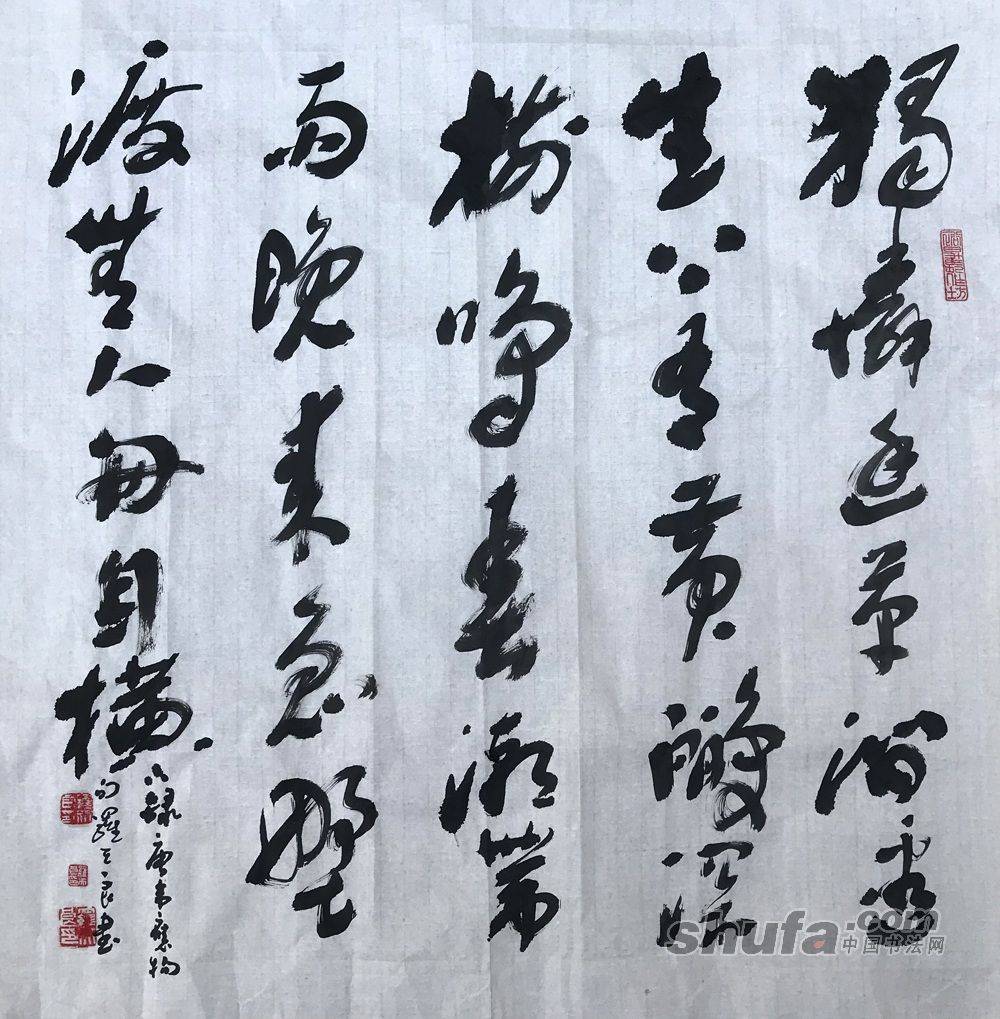 獨憐幽草澗邊
生上有黄鸝深
樹鳴春潮帶
雨晚来急野
渡無人舟自橫
録唐韋應物
羅良書
shufa.com
中国书法网